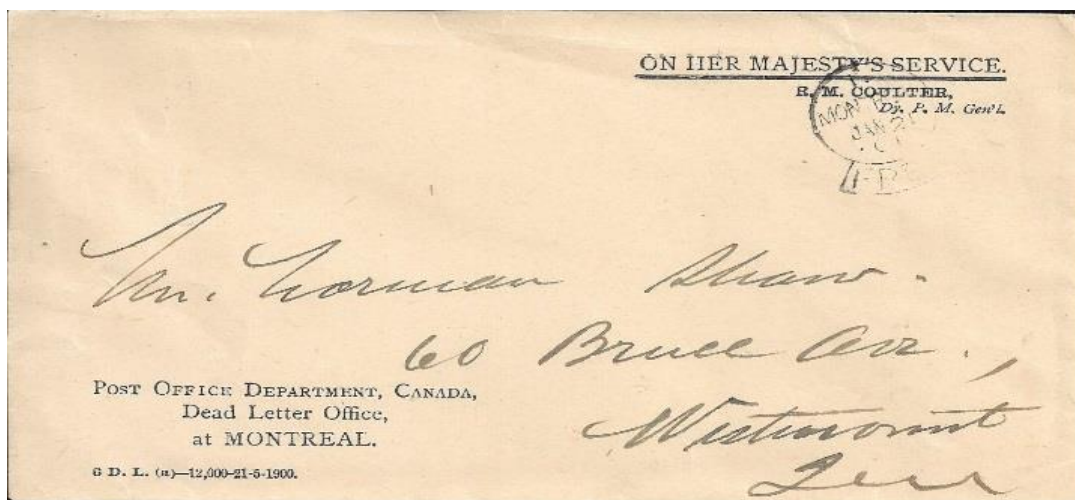 ON HER MAJESTY'S SERVICE.
R. M. COULTER,
Dy. P. M. Gen'l.
MON
JAN 21
Mr. Norman Shaw.
60 Bruce Ave.,
Westmount
Que
POST OFFICE DEPARTMENT, CANADA,
Dead Letter Office,
at MONTREAL.
6 D. L. (a)—12,000-21-5-1900.